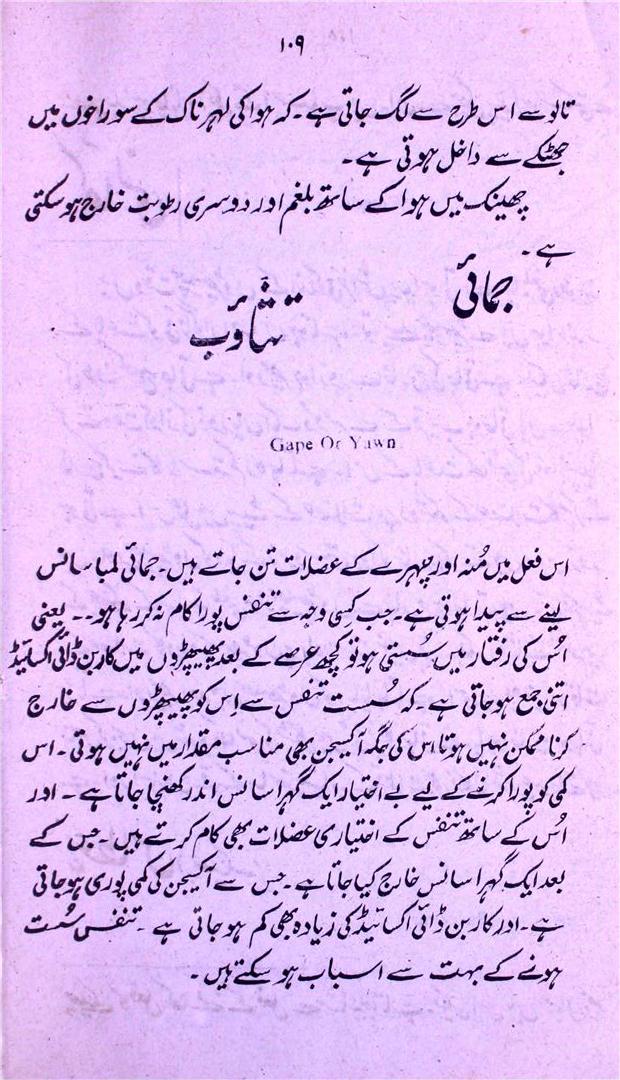 ۱۰۹
تالو سے اس طرح سے لگ جاتی ہے۔ کہ ہوا کی لہر ناک کے سوراخوں میں
جھٹکے سے داخل ہوتی ہے۔
چھینک میں ہوا کے ساتھ بلغم اور دوسری رطوبت خارج ہو سکتی
ہے۔
جمائی
تثاؤب
Gape Or Yawn
اس فعل میں مُنہ اور چہرے کے عضلات تن جاتے ہیں۔ جمائی لمبا سانس
لینے سے پیدا ہوتی ہے۔ جب کسی وجہ سے تنفس پورا کام نہ کر رہا ہو۔۔ یعنی
اُس کی رفتار میں سُستی ہو تو کچھ عرصے کے بعد پھیپھڑوں میں کاربن ڈائی اکسائیڈ
اتنی جمع ہو جاتی ہے۔ کہ سُست تنفس سے اِس کو پھیپھڑوں سے خارج
کرنا ممکن نہیں ہوتا اس کی جگہ آکسیجن بھی مناسب مقدار میں نہیں ہوتی۔ اس
کمی کو پورا کرنے کے لیے بے اختیار ایک گہرا سانس اندر کھنچا جاتا ہے۔ اور
اُس کے ساتھ تنفس کے اختیاری عضلات بھی کام کرتے ہیں۔ جس کے
بعد ایک گہرا سانس خارج کیا جاتا ہے۔ جس سے آکسیجن کی کمی پوری ہو جاتی
ہے۔ اور کاربن ڈائی اکسائیڈ کی زیادہ بھی کم ہو جاتی ہے۔ تنفس سُست
ہونے کے بہت سے اسباب ہو سکتے ہیں۔